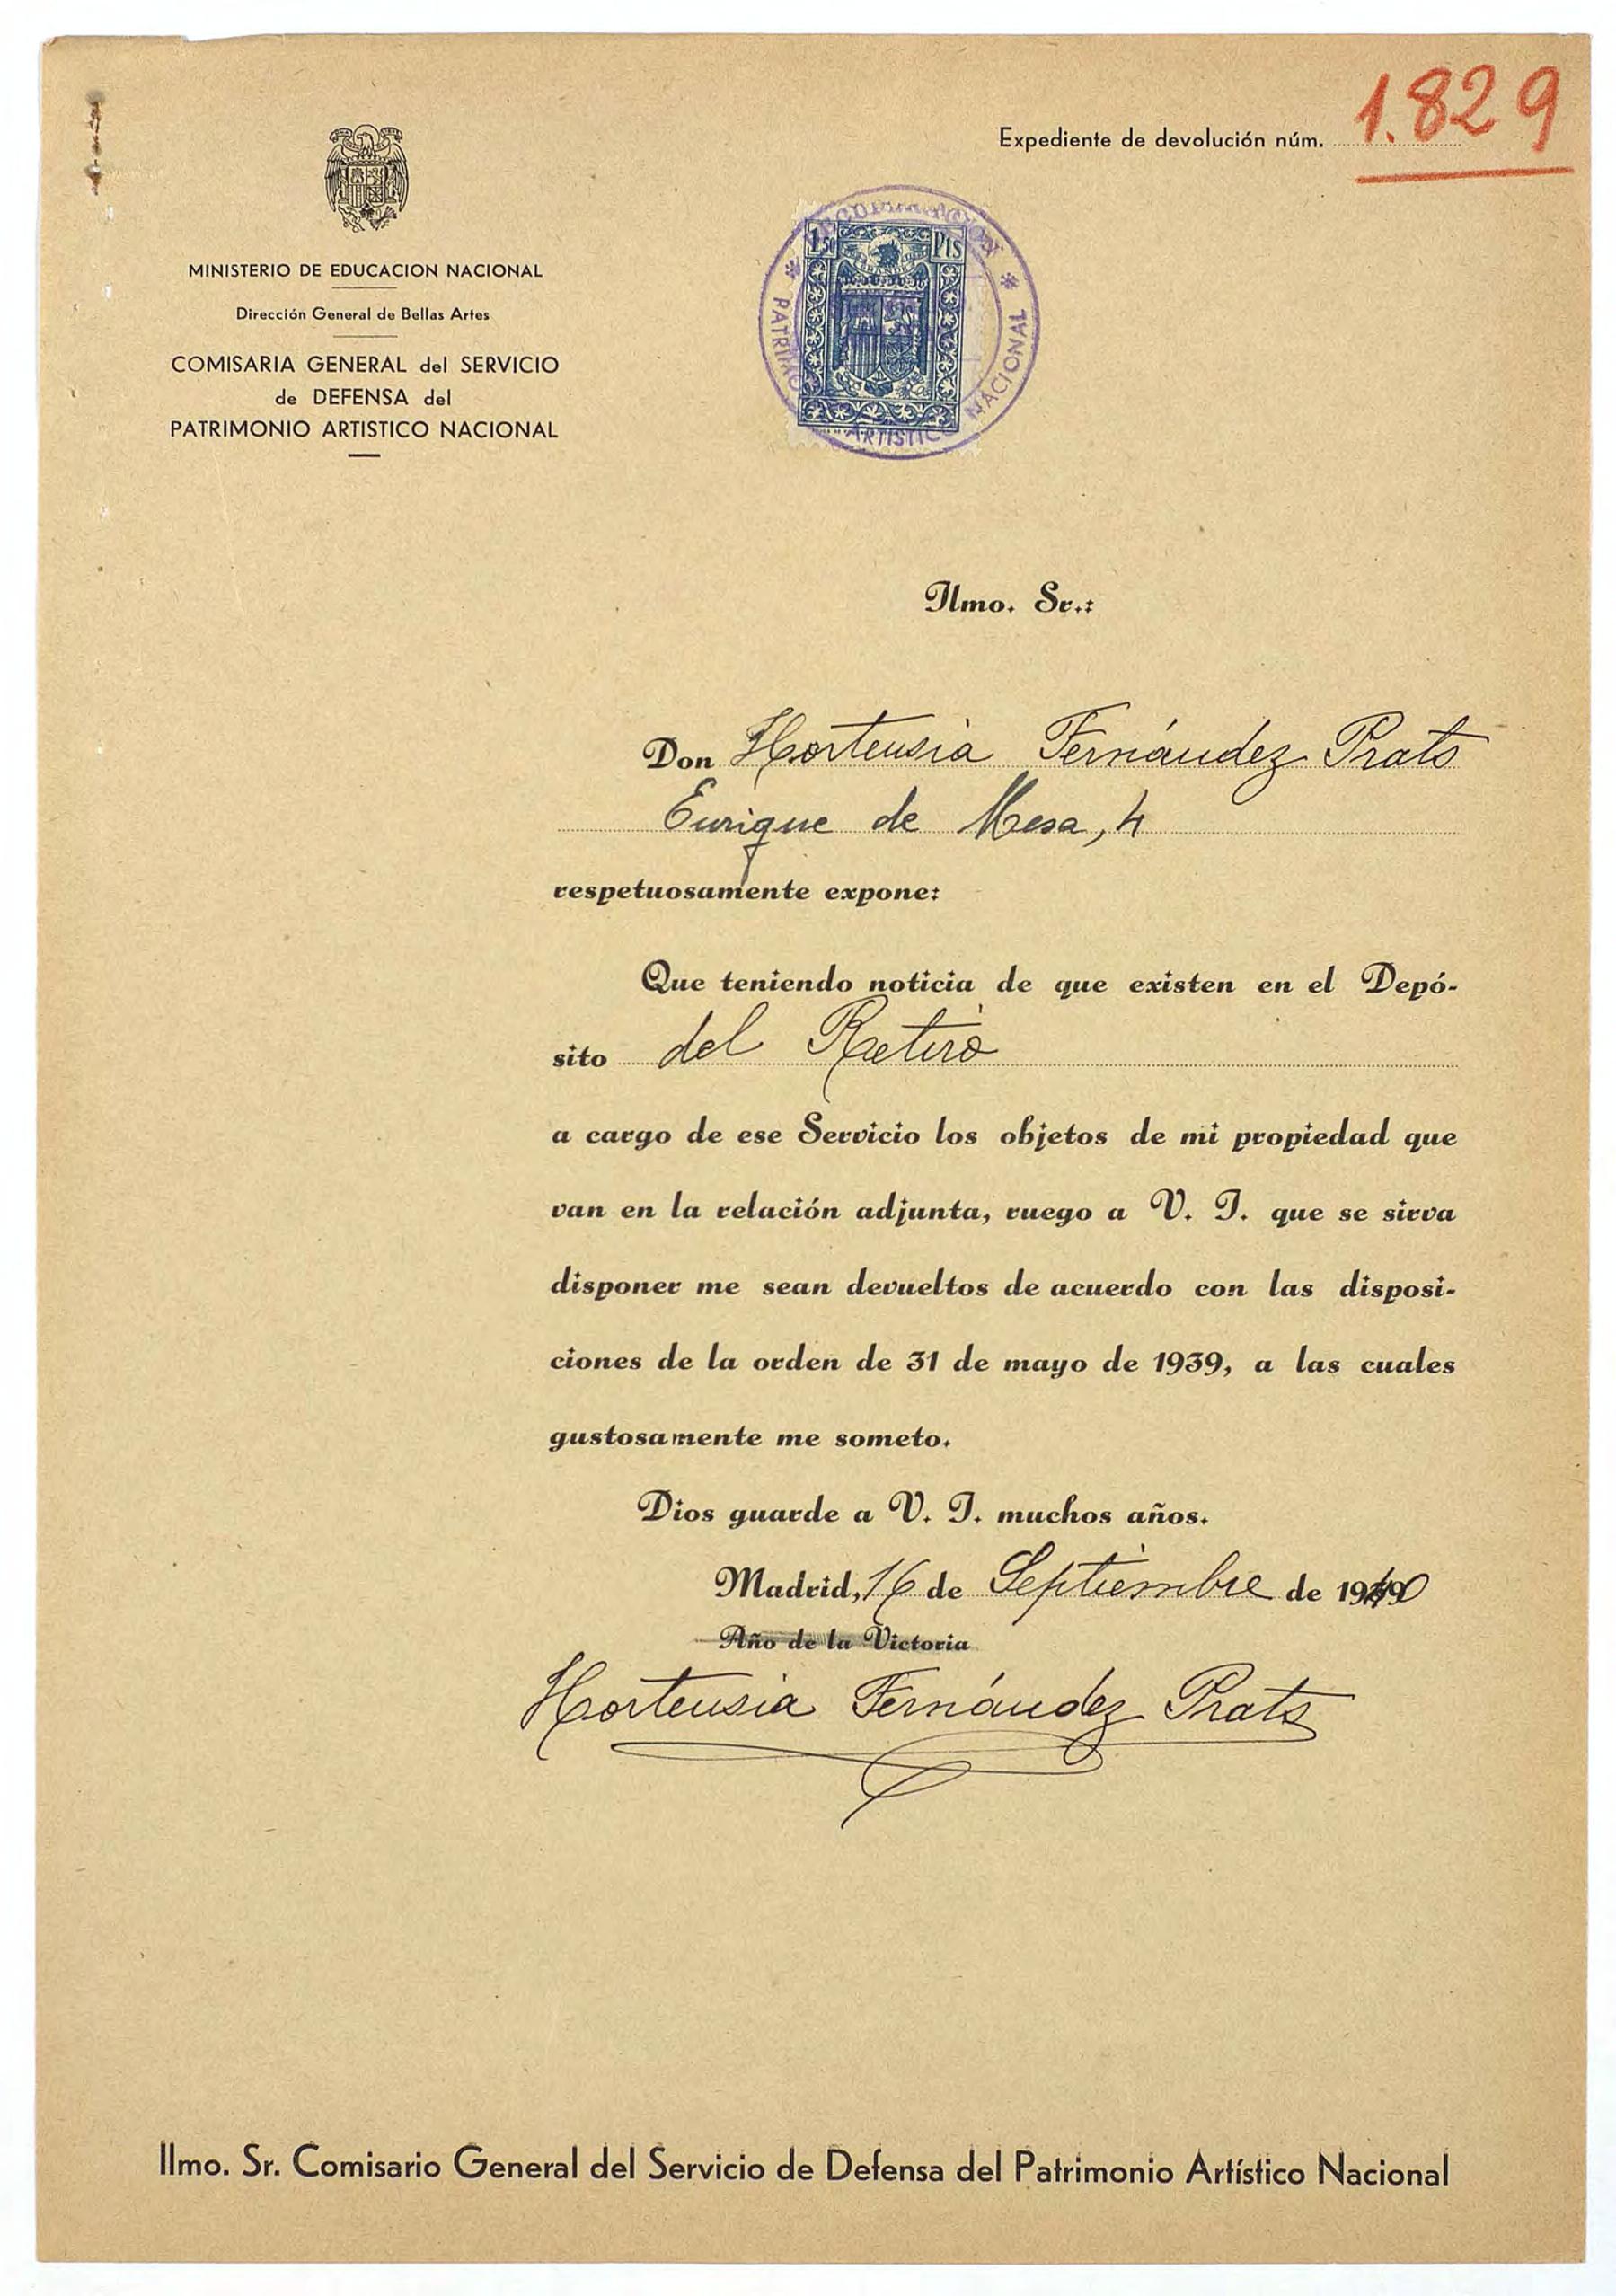 Expediente de devolución núm. 1.829
MINISTERIO DE EDUCACION NACIONAL
Dirección General de Bellas Artes
COMISARIA GENERAL del SERVICIO
de DEFENSA del
PATRIMONIO ARTISTICO NACIONAL
1,50 Pts
ARTISTICO NACIONAL
Ilmo. Sr.:
Don Hortensia Fernández Prats
Enrique de Mesa, 4
respetuosamente expone:
Que teniendo noticia de que existen en el Depó-
sito del Retiro
a cargo de ese Servicio los objetos de mi propiedad que
van en la relación adjunta, ruego a V. I. que se sirva
disponer me sean devueltos de acuerdo con las disposi-
ciones de la orden de 31 de mayo de 1939, a las cuales
gustosamente me someto.
Dios guarde a V. I. muchos años.
Madrid, 16 de Septiembre de 1940
Año de la Victoria
Hortensia Fernández Prats
Ilmo. Sr. Comisario General del Servicio de Defensa del Patrimonio Artístico Nacional